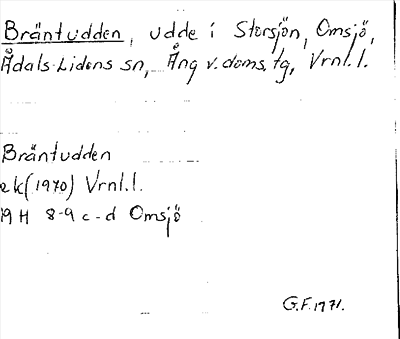 Bräntudden, udde i Storsjön, Omsjö,
Ådals-Lidens sn, Ång v. doms. tg, Vrnl. l.
Bräntudden
ek (1970) Vrnl. l.
19 H 8-9 c-d Omsjö
G.F. 1971.